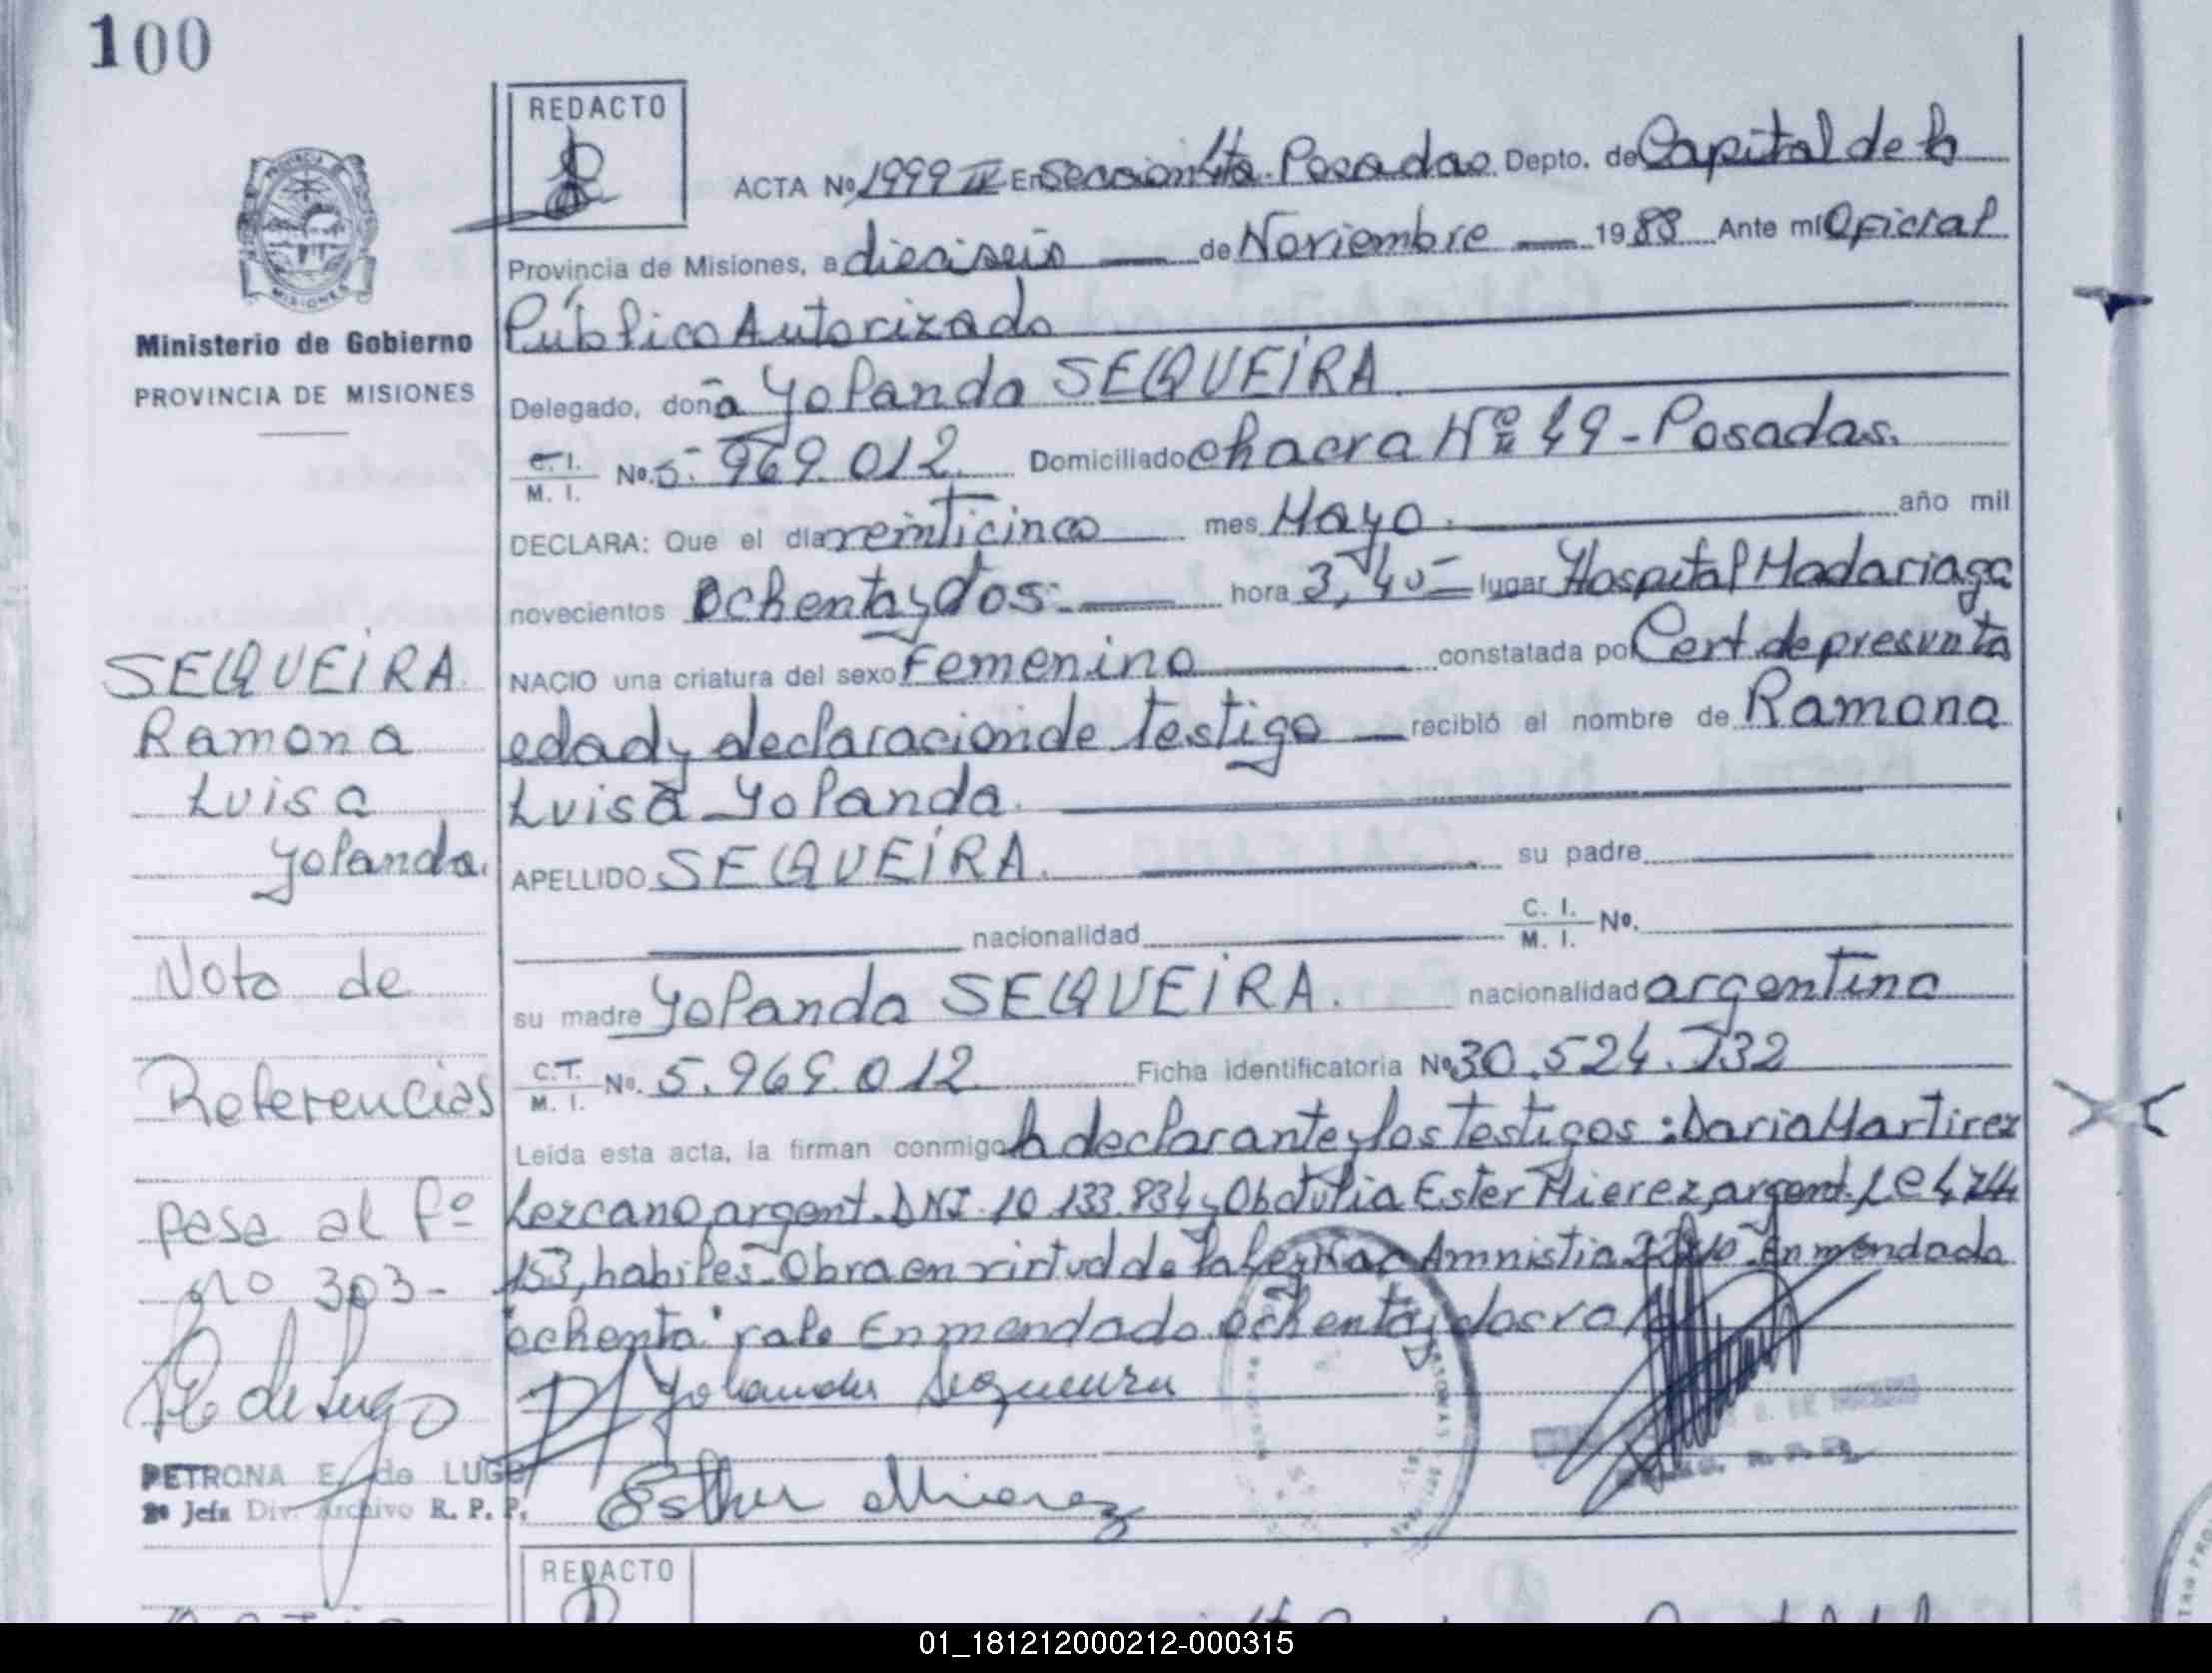 100
REDACTO
ACTA No 1999 IV En Sección 4ta. Posadas Depto. de Capital de la
Provincia de Misiones, a dieciseis de Noviembre 1988 Ante mí Oficial
Público Autorizado
Ministerio de Gobierno
PROVINCIA DE MISIONES
Delegado, doña Yolanda SEQUEIRA.
C. I. M. I. No. 5.969.012. Domiciliado chacra Nº 49 - Posadas.
DECLARA: Que el día veinticinco mes Mayo. año mil
novecientos Ochenta y dos. hora 3,40 lugar Hospital Madariaga
NACIO una criatura del sexo Femenino constatada por Cert de presunta
edad y declaración de testigo recibló el nombre de Ramona
Luisa Yolanda.
APELLIDO SEQUEIRA. su padre
nacionalidad C. I. M. I. No.
su madre Yolanda SEQUEIRA. nacionalidad argentina
C.I. M. I. No. 5.969.012 Ficha identificatoria No 30.524.732
Leída esta acta, la firman conmigo la declarante y los testigos: Daria Martirez
Lezcano, argent. DNI. 10.133.834 y Obdulia Ester Mierez, argent. LC 4.744
153, habiles. Obra en virtud de la Ley Nac Amnistia Enmendado
"ochenta" vale Enmendado ochenta y dos vale
Yolanda Sequeira
Esther Mierez
SEQUEIRA.
Ramona
Luisa
Yolanda.
Nota de
Referencias
pasa al Fº
nº 303-
E de Lugo
PETRONA E. de LUGO
2ª Jefa Div. Archivo R. P. P.
REDACTO
01_181212000212-000315